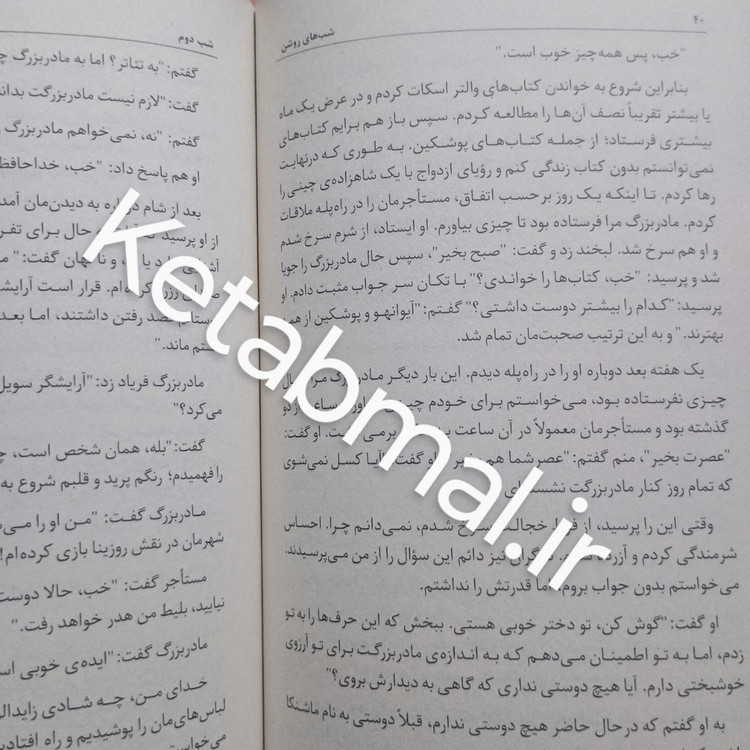 ۴۰
شب‌های روشن
"خب، پس همه‌چیز خوب است."
بنابراین شروع به خواندن کتاب‌های والتر اسکات کردم و در عرض یک ماه
یا بیشتر تقریباً نصف آن‌ها را مطالعه کردم. سپس باز هم برایم کتاب‌های
بیشتری فرستاد؛ از جمله کتاب‌های پوشکین. به طوری که درنهایت
نمی‌توانستم بدون کتاب زندگی کنم و رؤیای ازدواج با یک شاهزاده‌ی چینی را
رها کردم. تا اینکه یک روز برحسب اتفاق، مستأجرمان را در راه‌پله ملاقات
کردم. مادربزرگ مرا فرستاده بود تا چیزی بیاورم. او ایستاد، از شرم سرخ شدم
و او هم سرخ شد. لبخند زد و گفت: "صبح بخیر"، سپس حال مادربزرگ را جویا
شد و پرسید: "خب، کتاب‌ها را خواندی؟" با تکان سر جواب مثبت دادم. او
پرسید: "کدام را بیشتر دوست داشتی؟" گفتم: "آیوانهو و پوشکین از همه
بهترند." و به این ترتیب صحبت‌مان تمام شد.
یک هفته بعد دوباره او را در راه‌پله دیدم. این بار دیگر مادربزرگ مرا
چیزی نفرستاده بود، می‌خواستم برای خودم چیزی ساعت از دو
گذشته بود و مستأجرمان معمولاً در آن ساعت او گفت:
"عصرت بخیر"، منم گفتم: "عصر شما هم او گفت: "آیا کسل نمی‌شوی
که تمام روز کنار مادربزرگت نشسته‌ای
وقتی این را پرسید، از فرط خجالت سرخ شدم، نمی‌دانم چرا. احساس
شرمندگی کردم و آزرده دیگران نیز دائم این سؤال را از من می‌پرسیدند.
می‌خواستم بدون جواب بروم، اما قدرتش را نداشتم.
او گفت: "گوش کن، تو دختر خوبی هستی. ببخش که این حرف‌ها را به تو
زدم، اما به تو اطمینان می‌دهم که به اندازه‌ی مادربزرگت برای تو آرزوی
خوشبختی دارم. آیا هیچ دوستی نداری که گاهی به دیدارش بروی؟"
به او گفتم که درحال حاضر هیچ دوستی ندارم، قبلاً دوستی به نام ماشنکا
شب دوم
گفتم: "به تئاتر؟ اما به مادربزرگ
گفت: "لازم نیست مادربزرگت بداند
گفتم: "نه، نمی‌خواهم مادربزرگ
او هم پاسخ داد: "خب، خداحافظ
بعد از شام دوباره به دیدن‌مان آمد
از او پرسید که حال برای
و ناگهان گفت: "
قرار است
قصد رفتن داشتند، اما بعد
ماند."
مادربزرگ فریاد زد: "آرایشگر سویل
می‌کرد؟"
گفت: "بله، همان شخص است،
را فهمیدم؛ رنگم پرید و قلبم شروع به
مادربزرگ گفت: "من او را
شهرمان در نقش روزینا بازی کرده‌ام!
مستأجر گفت: "خب، حالا دوست
نیایید، بلیط من هدر خواهد رفت."
مادربزرگ گفت: "ایده‌ی خوبی
خدای من، چه شادی
لباس‌های‌مان را پوشیدیم و راه
می‌خواست
Ketabmal.ir